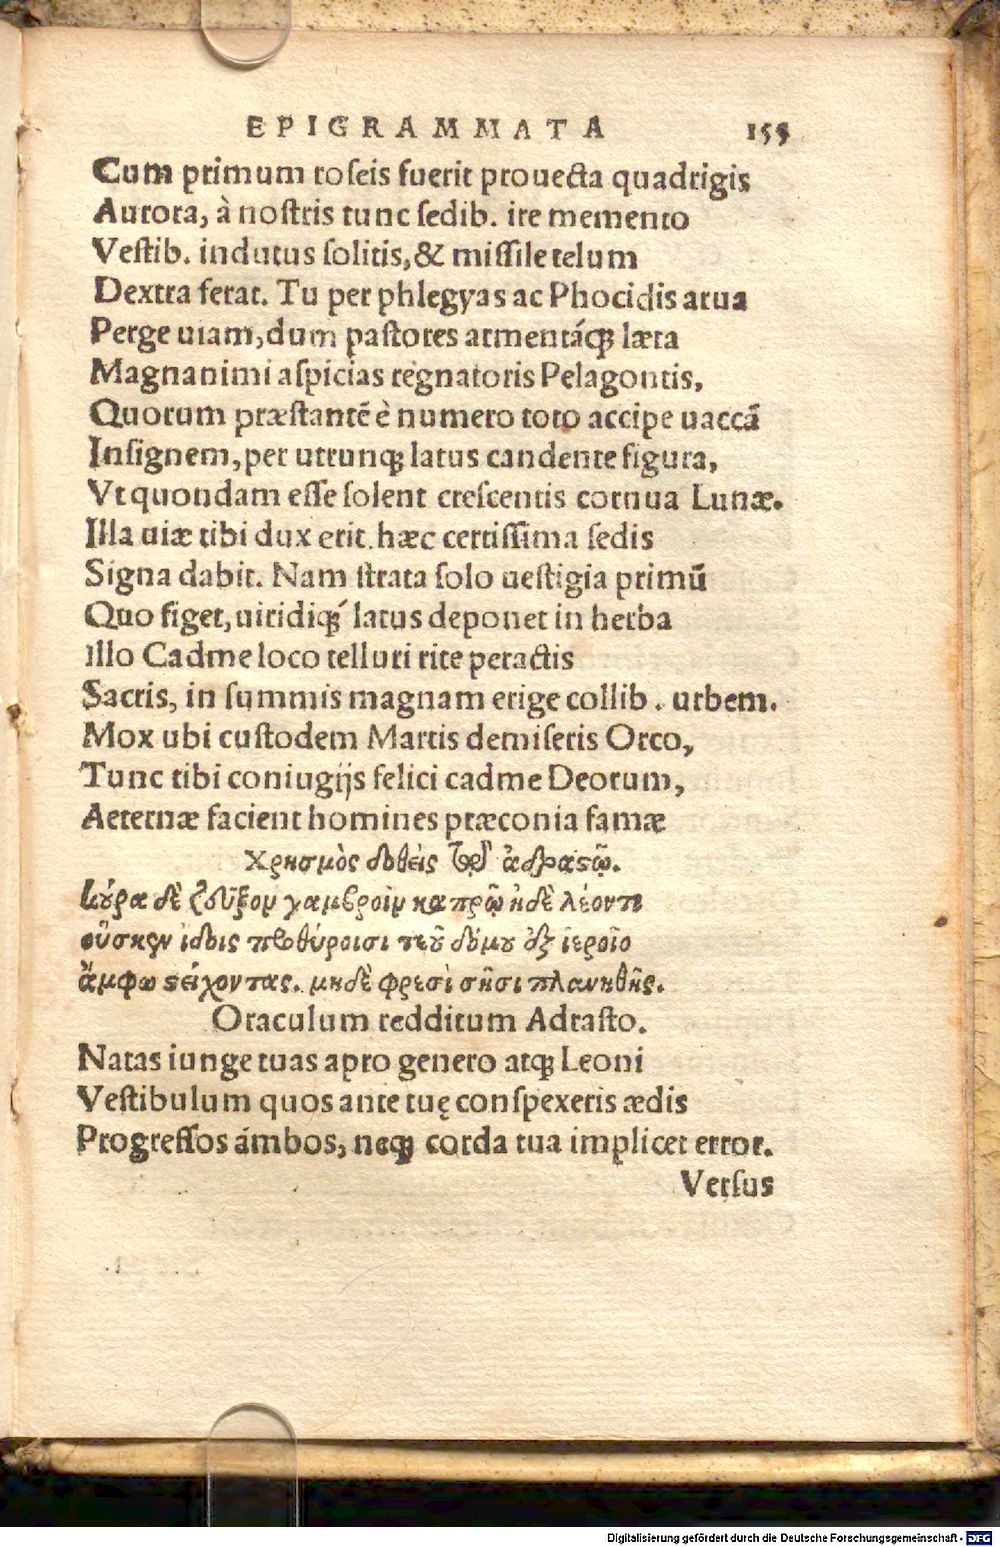 EPIGRAMMATA 155
Cum primum roſeis fuerit prouecta quadrigis
Aurora, à noſtris tunc ſedib. ire memento
Veſtib. indutus ſolitis, & miſſile telum
Dextra ferat. Tu per phlegyas ac Phocidis arua
Perge uiam, dum paſtores armentáq; læta
Magnanimi aſpicias regnatoris Pelagontis,
Quorum præſtantē è numero toto accipe uaccā
Inſignem, per utrunq; latus candente figura,
Vt quondam eſſe ſolent creſcentis cornua Lunæ.
Illa uiæ tibi dux erit. hæc certiſſima ſedis
Signa dabit. Nam ſtrata ſolo ueſtigia primū
Quo figet, uiridiq́; latus deponet in herba
Illo Cadme loco telluri rite peractis
Sacris, in ſummis magnam erige collib. urbem.
Mox ubi cuſtodem Martis demiſeris Orco,
Tunc tibi coniugijs felici cadme Deorum,
Aeternæ facient homines præconia famæ
Χρησμὸς δοθεὶς τῷ ἀδράϛῳ.
κούρα δὲ ζεῦξον γαμβροῖν καπρῷ ἠδὲ λέοντι
οὕσκεν ἴδοις προθύροισι τεοῦ δόμου ἐξ ἱεροῖο
ἄμφω ϛείχοντας. μηδὲ φρεσὶ σῇσι πλανηθῇς.
Oraculum redditum Adraſto.
Natas iunge tuas apro genero atq; Leoni
Veſtibulum quos ante tuę conſpexeris ædis
Progreſſos ámbos, neq; corda tua implicet error.
Verſus
Digitalisierung gefördert durch die Deutsche Forschungsgemeinschaft - DFG